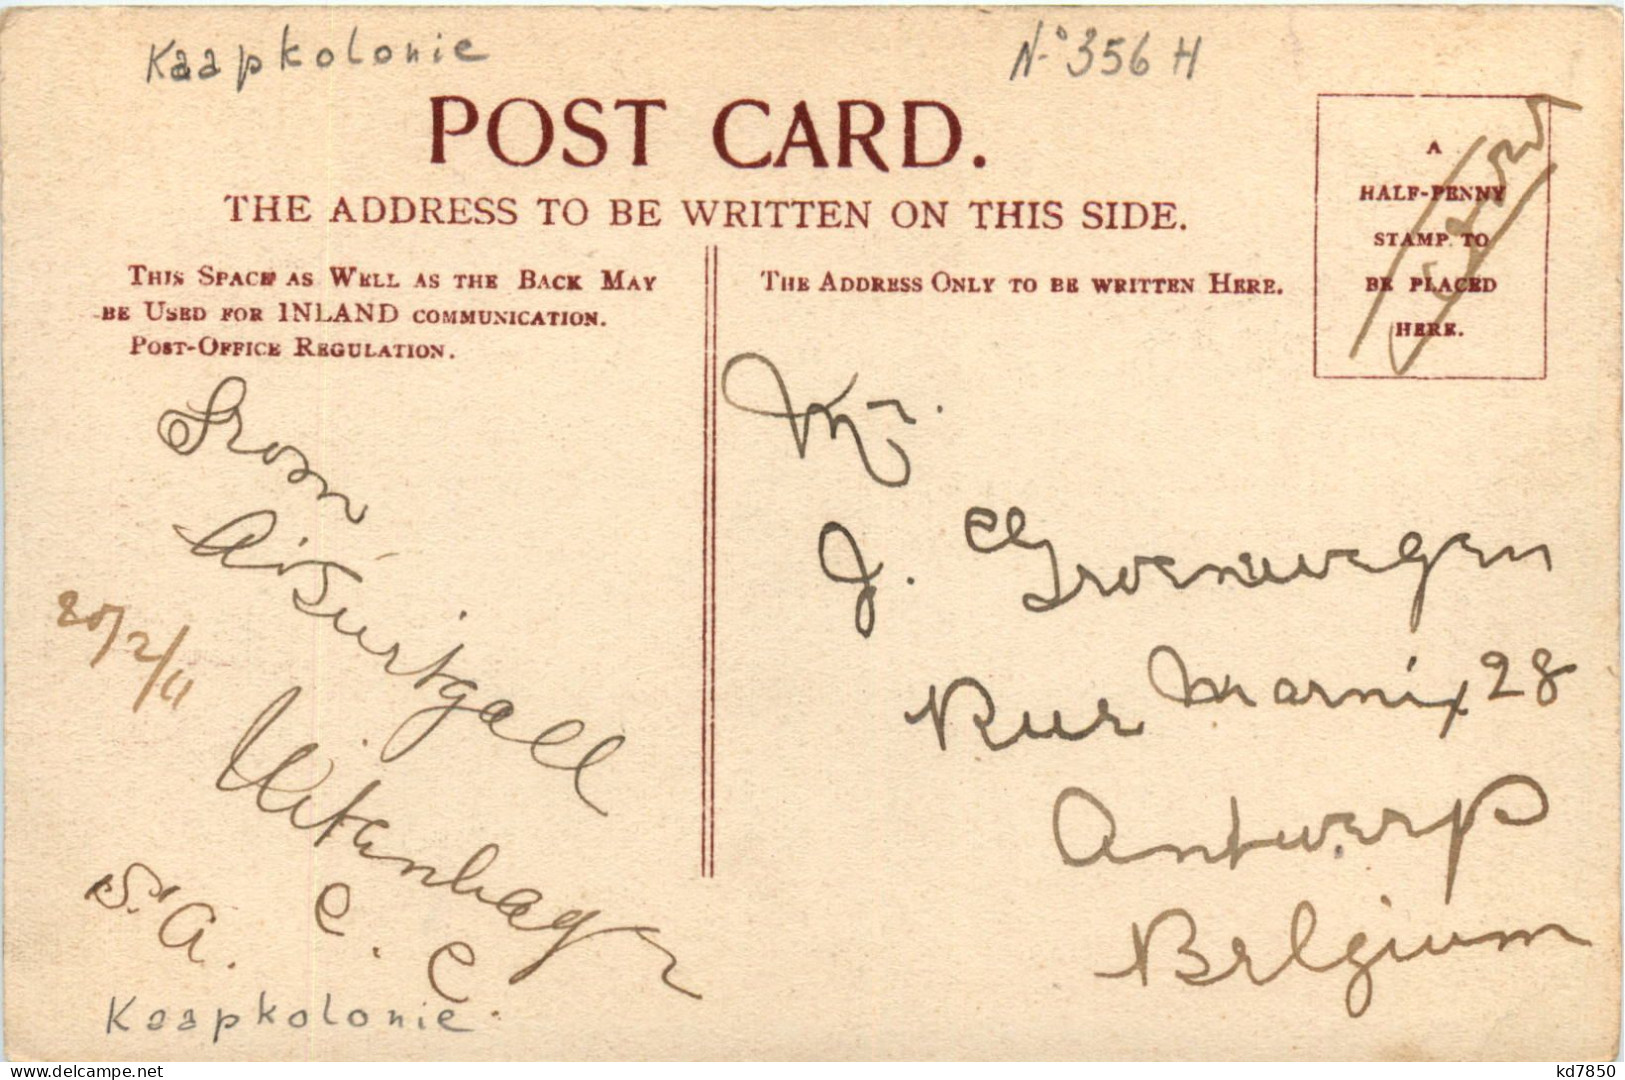 Kaapkolonie
N.° 356 H
POST CARD.
THE ADDRESS TO BE WRITTEN ON THIS SIDE.
THIS SPACE AS WELL AS THE BACK MAY
BE USED FOR INLAND COMMUNICATION.
POST-OFFICE REGULATION.
THE ADDRESS ONLY TO BE WRITTEN HERE.
A
HALF-PENNY
STAMP TO
BE PLACED
HERE.
From
20/2/11
Uitenhage
C. C.
S. A.
Kaapkolonie
Mr.
J. Groenewegen
Rue Marnix 28
Antwerp
Belgium
delcampe.net
kd7850